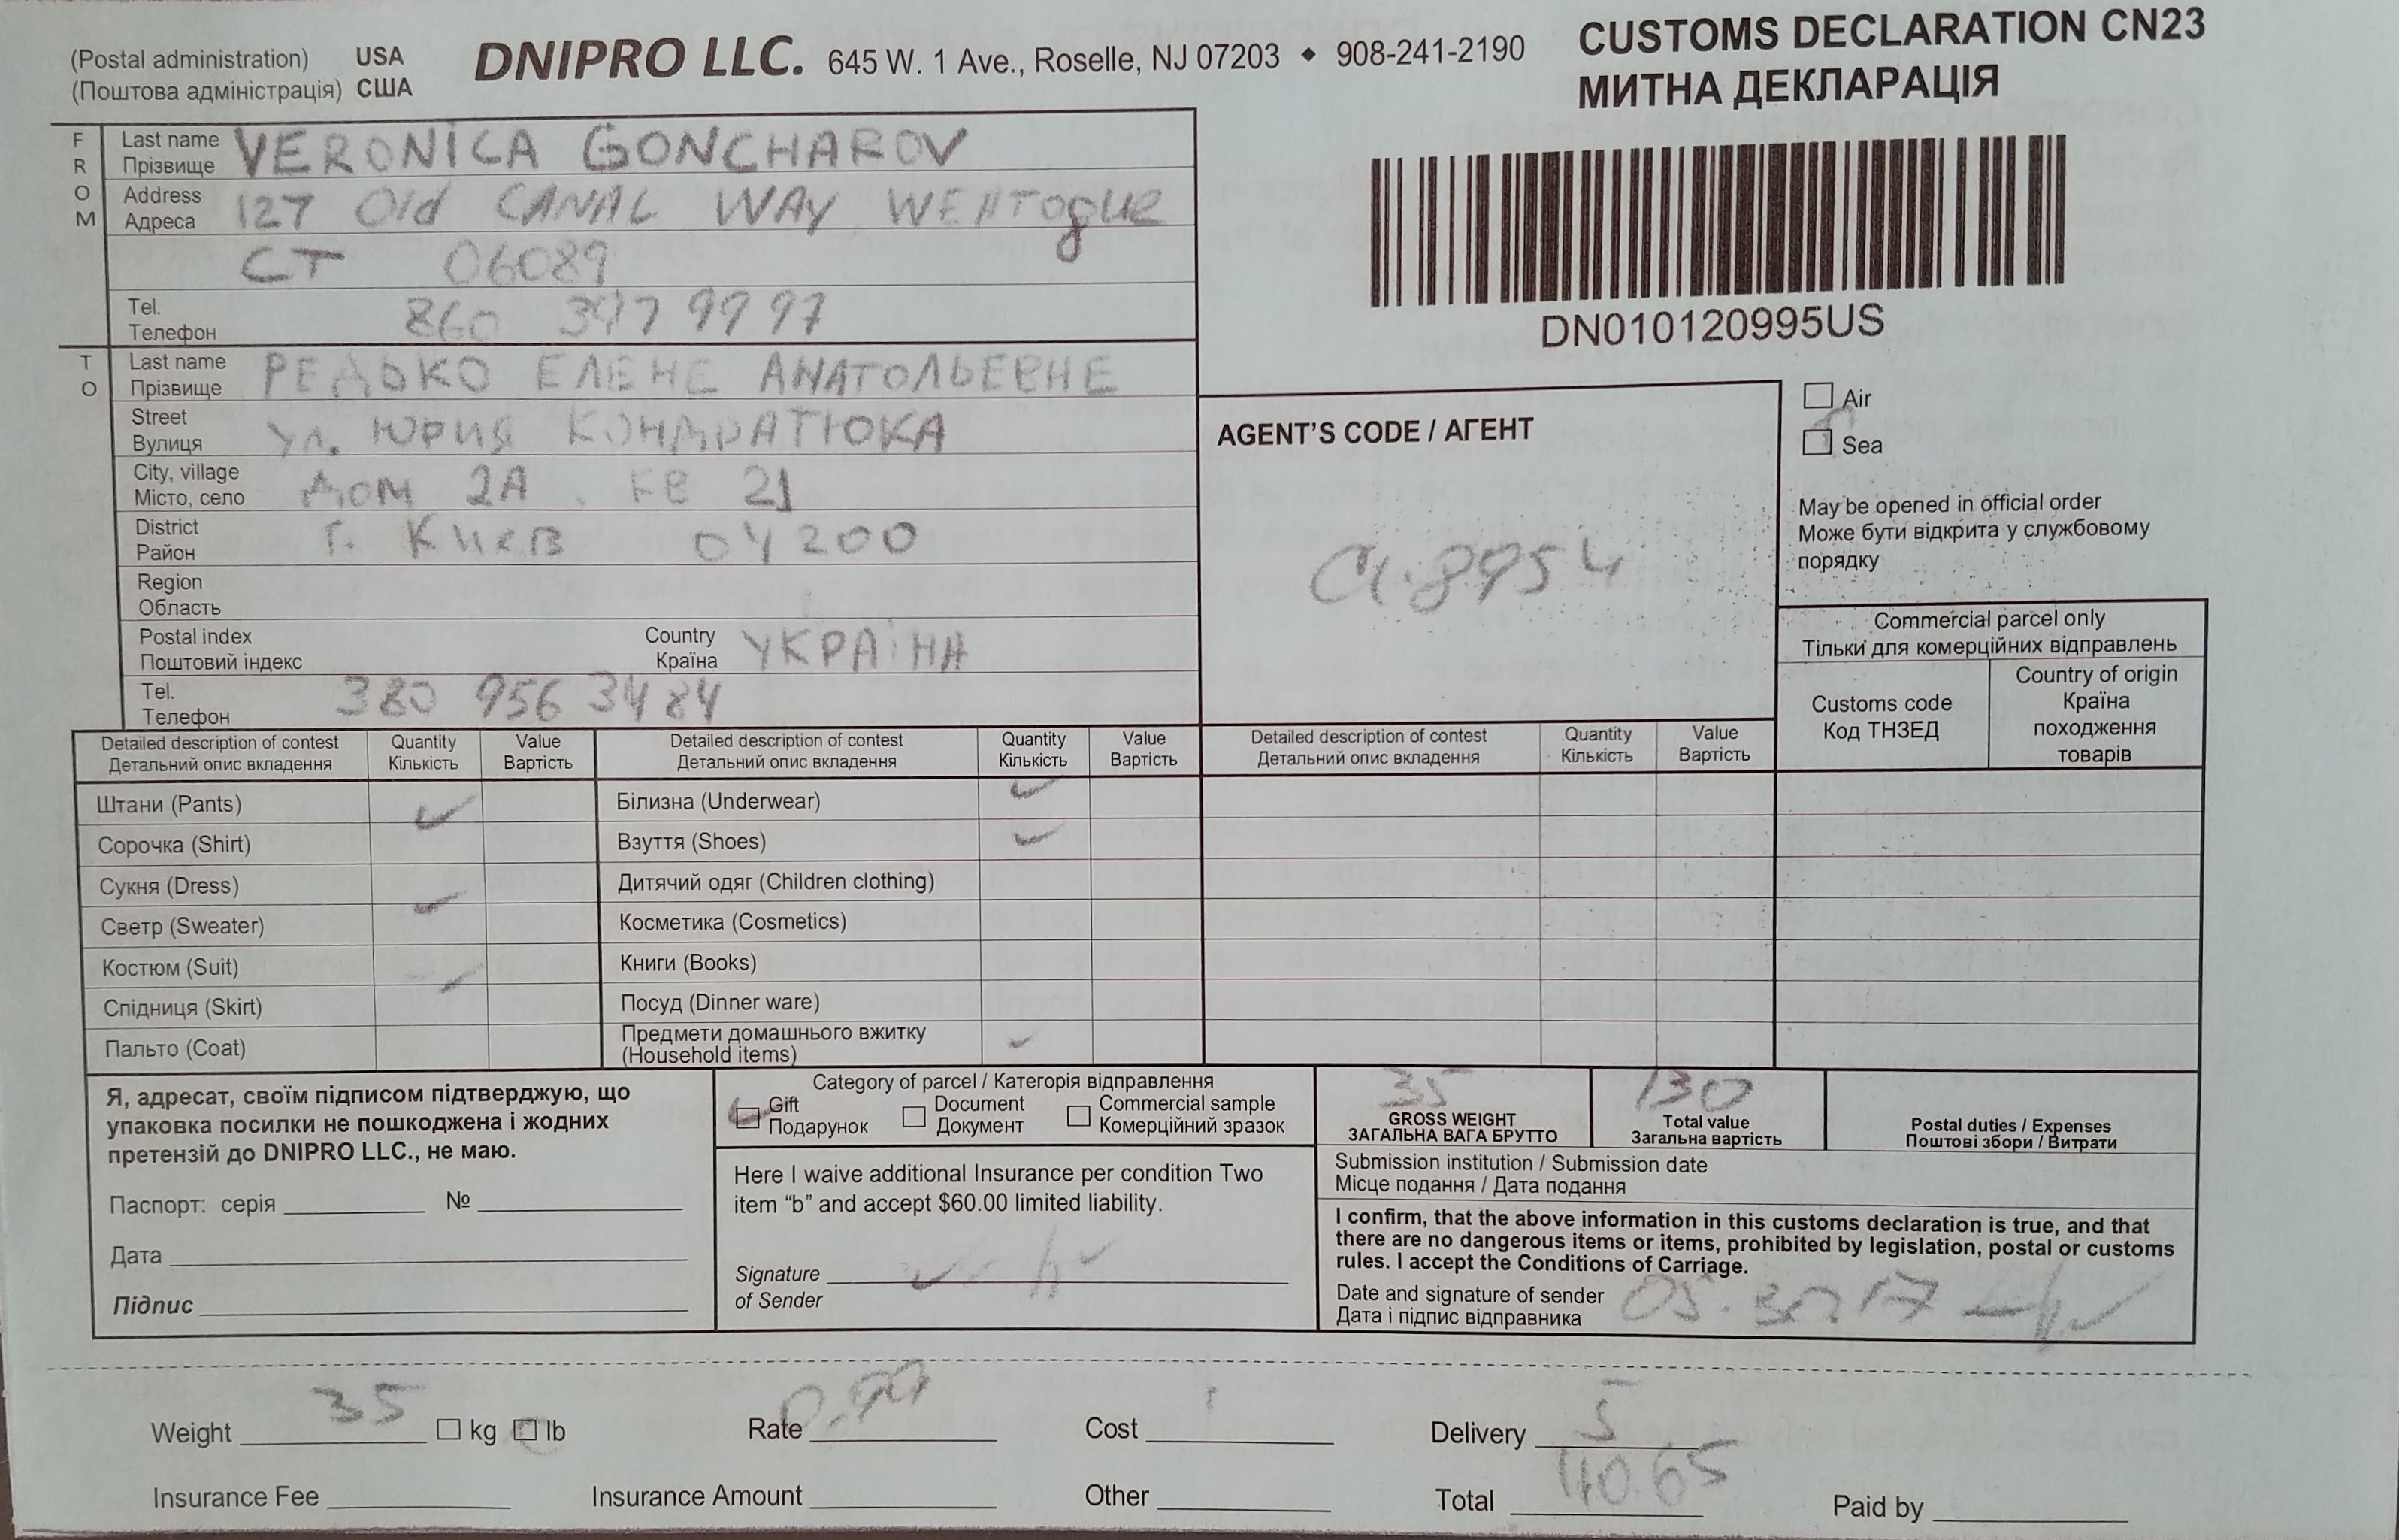 (Postal administration) USA
(Поштова адміністрація) США
DNIPRO LLC. 645 W. 1 Ave., Roselle, NJ 07203 ◆ 908-241-2190
CUSTOMS DECLARATION CN23
МИТНА ДЕКЛАРАЦІЯ
DN010120995US
FROM
Last name
Прізвище
VERONICA GONCHAROV
Address
Адреса
127 Old CANAL WAY WEATogue
CT 06089
Tel.
Телефон
860 397 9997
TO
Last name
Прізвище
РЕДЬКО ЕЛЕНЕ АНАТОЛЬЕВНЕ
Street
Вулиця
ул. ЮРИЯ КОНДРАТЮКА
City, village
Місто, село
Дом 2А. кв 21
District
Район
г. Киев 04200
Region
Область
Postal index
Поштовий індекс
Country
Країна
УКРАЇНА
Tel.
Телефон
380 956 3484
AGENT'S CODE / АГЕНТ
Air
Sea
May be opened in official order
Може бути відкрита у службовому
порядку
Commercial parcel only
Тільки для комерційних відправлень
Customs code
Код ТНЗЕД
Country of origin
Країна
походження
товарів
Detailed description of contest Quantity Value Detailed description of contest Quantity Value Detailed description of contest Quantity Value
Детальний опис вкладення Кількість Вартість Детальний опис вкладення Кількість Вартість Детальний опис вкладення Кількість Вартість
Штани (Pants) Білизна (Underwear)
Сорочка (Shirt) Взуття (Shoes)
Сукня (Dress) Дитячий одяг (Children clothing)
Светр (Sweater) Косметика (Cosmetics)
Костюм (Suit) Книги (Books)
Спідниця (Skirt) Посуд (Dinner ware)
Пальто (Coat) Предмети домашнього вжитку
(Household items)
Я, адресат, своїм підписом підтверджую, що
упаковка посилки не пошкоджена і жодних
претензій до DNIPRO LLC., не маю.
Паспорт: серія № 
Дата
Підпис
Category of parcel / Категорія відправлення
Gift Document Commercial sample
Подарунок Документ Комерційний зразок
Here I waive additional Insurance per condition Two
item "b" and accept $60.00 limited liability.
Signature
of Sender
35
GROSS WEIGHT
ЗАГАЛЬНА ВАГА БРУТТО
130
Total value
Загальна вартість
Postal duties / Expenses
Поштові збори / Витрати
Submission institution / Submission date
Місце подання / Дата подання
I confirm, that the above information in this customs declaration is true, and that
there are no dangerous items or items, prohibited by legislation, postal or customs
rules. I accept the Conditions of Carriage.
Date and signature of sender
Дата і підпис відправника
05.30 17
Weight 35 kg lb Rate 0,99 Cost Delivery 5
Insurance Fee Insurance Amount Other Total 40.65 Paid by